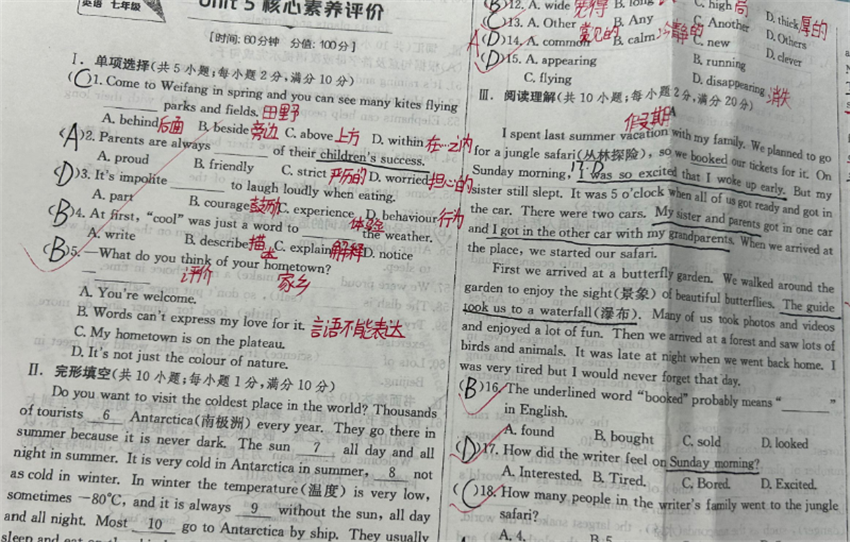 英语 七年级
Unit 5 核心素养评价
[时间:60分钟 分值:100分]
Ⅰ. 单项选择(共5小题;每小题2分,满分10分)
(C)1. Come to Weifang in spring and you can see many kites flying
______ parks and fields. 田野
A. behind后面 B. beside旁边 C. above上方 D. within在…之内
(A)2. Parents are always ______ of their children's success.
A. proud B. friendly C. strict严厉的 D. worried担心的
(D)3. It's impolite ______ to laugh loudly when eating.
A. part B. courage鼓励 C. experience体验 D. behaviour行为
(B)4. At first, “cool” was just a word to ______ the weather.
A. write B. describe描本 C. explain解释 D. notice
(B)5. —What do you think of your hometown?
评价 家乡
—______
A. You're welcome.
B. Words can't express my love for it. 言语不能表达
C. My hometown is on the plateau.
D. It's not just the colour of nature.
Ⅱ. 完形填空(共10小题;每小题1分,满分10分)
Do you want to visit the coldest place in the world? Thousands
of tourists 6 Antarctica(南极洲) every year. They go there in
summer because it is never dark. The sun 7 all day and all
night in summer. It is very cold in Antarctica in summer, 8 not
as cold in winter. In winter the temperature(温度) is very low,
sometimes −80℃, and it is always 9 without the sun, all day
and all night. Most 10 go to Antarctica by ship. They usually
(B)12. A. wide 宽得 B. long C. high 高 D. thick厚的
(C)13. A. Other B. Any C. Another D. Others
A(D)14. A. common常见的 B. calm冷静的 C. new D. clever
(D)15. A. appearing B. running
C. flying D. disappearing 消失
Ⅲ. 阅读理解(共10小题;每小题2分,满分20分)
A
假期
I spent last summer vacation with my family. We planned to go
for a jungle safari(丛林探险), so we booked our tickets for it. On
Sunday morning, I was so excited that I woke up early. But my
sister still slept. It was 5 o'clock when all of us got ready and got in
the car. There were two cars. My sister and parents got in one car
and I got in the other car with my grandparents. When we arrived at
the place, we started our safari.
First we arrived at a butterfly garden. We walked around the
garden to enjoy the sight(景象) of beautiful butterflies. The guide
took us to a waterfall(瀑布). Many of us took photos and videos
and enjoyed a lot of fun. Then we arrived at a forest and saw lots of
birds and animals. It was late at night when we went back home. I
was very tired but I would never forget that day.
(B)16. The underlined word “booked” probably means “______”
in English.
A. found B. bought C. sold D. looked
(D)17. How did the writer feel on Sunday morning?
A. Interested. B. Tired. C. Bored. D. Excited.
(C)18. How many people in the writer's family went to the jungle
safari?
A. 4. B. 5.